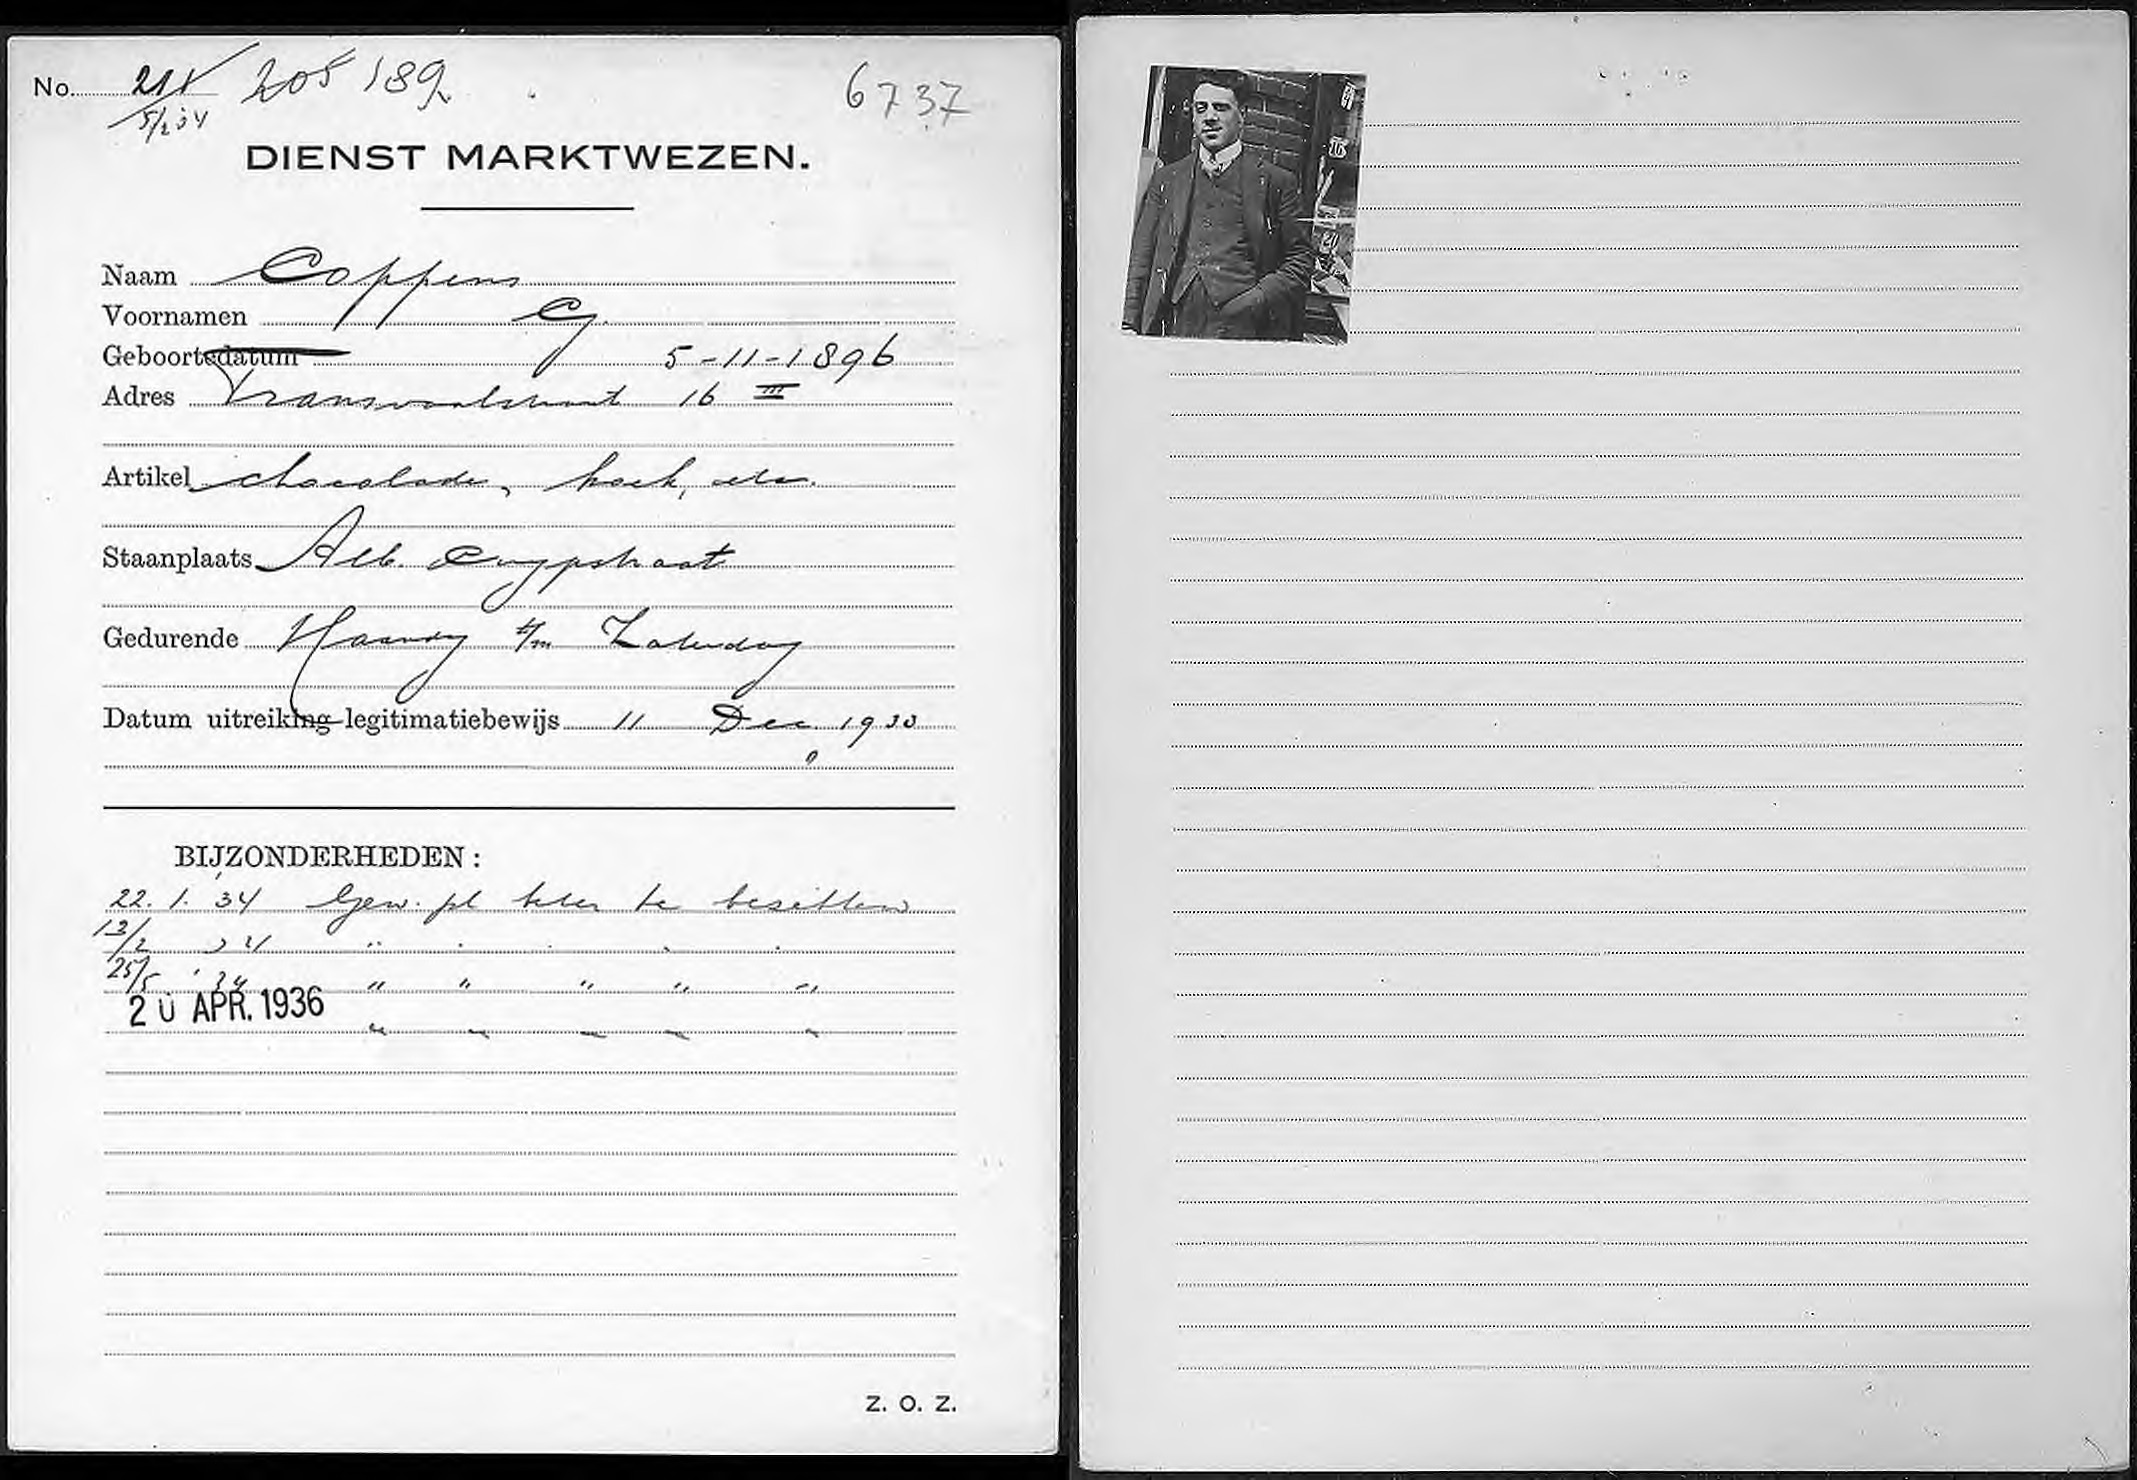 No. 211 205 189 6737
5/2 34
DIENST MARKTWEZEN.
Naam Coppens
Voornamen C.
Geboortedatum 5-11-1896
Adres Transvaalstraat 16 III
Artikel chocolade, koek, etc.
Staanplaats Alb. Cuypstraat
Gedurende Maandag t/m Zaterdag
Datum uitreiking legitimatiebewijs 11 Dec 1933
BIJZONDERHEDEN:
22. 1. 34 Gew. pl beter te bezetten
12/2 34 " " " " "
25/5 '34 " " " " "
20 APR. 1936 " " " " "
Z. O. Z.
16
20